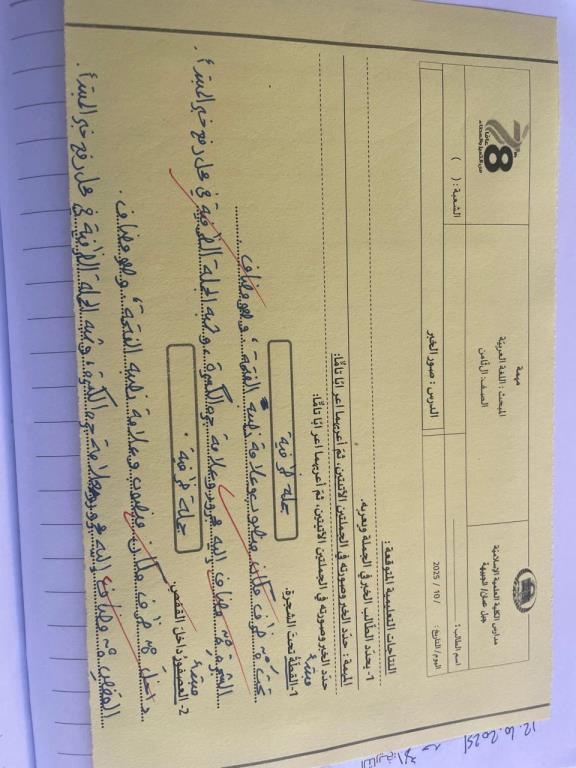 مدارس الكلية العلمية الإسلامية
جبل عمان/ الجبيهة
مهمة
المبحث: اللغة العربية
الصف: الثامن
78
اسم الطالب:
الشعبة: ( )
اليوم/ التاريخ: / 10 / 2025
الدرس: صور الخبر
النتاجات التعليمية المتوقعة:
1- يحدد الطالب الخبر في الجملة ويعربه.
المهمة: حدّد الخبر وصورته في الجملتين الآتيتين، ثمّ أعربهما اعرابًا تامًّا:
حدّد الخبر وصورته في الجملتين الآتيتين، ثمّ أعربهما اعرابًا تامًّا:
مبتدأ
1- القطة تحت الشجرة.
جملة ظرفية
تحت: ظرف مكان منصوب وعلامة نصبه الفتحة، وهو مضاف.
الشجرة: مضاف إليه مجرور وعلامة جره الكسرة، وشبه الجملة الظرفية في محل رفع خبر المبتدأ.
مبتدأ
2- العصفور داخل القفص.
جملة ظرفية.
داخل: ظرف مكان منصوب وعلامة نصبه الفتحة، وهو مضاف.
القفص: مضاف إليه مجرور وعلامة جره الكسرة، وشبه الجملة الظرفية في محل رفع خبر المبتدأ.